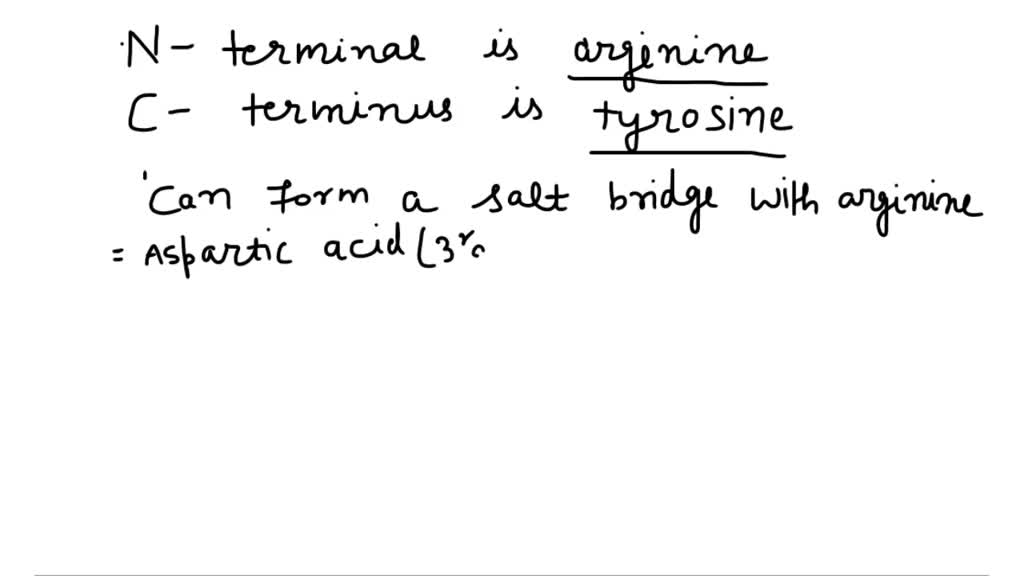 N- terminal is arginine
C- terminus is tyrosine
Can form a salt bridge with arginine
= Aspartic acid (3r